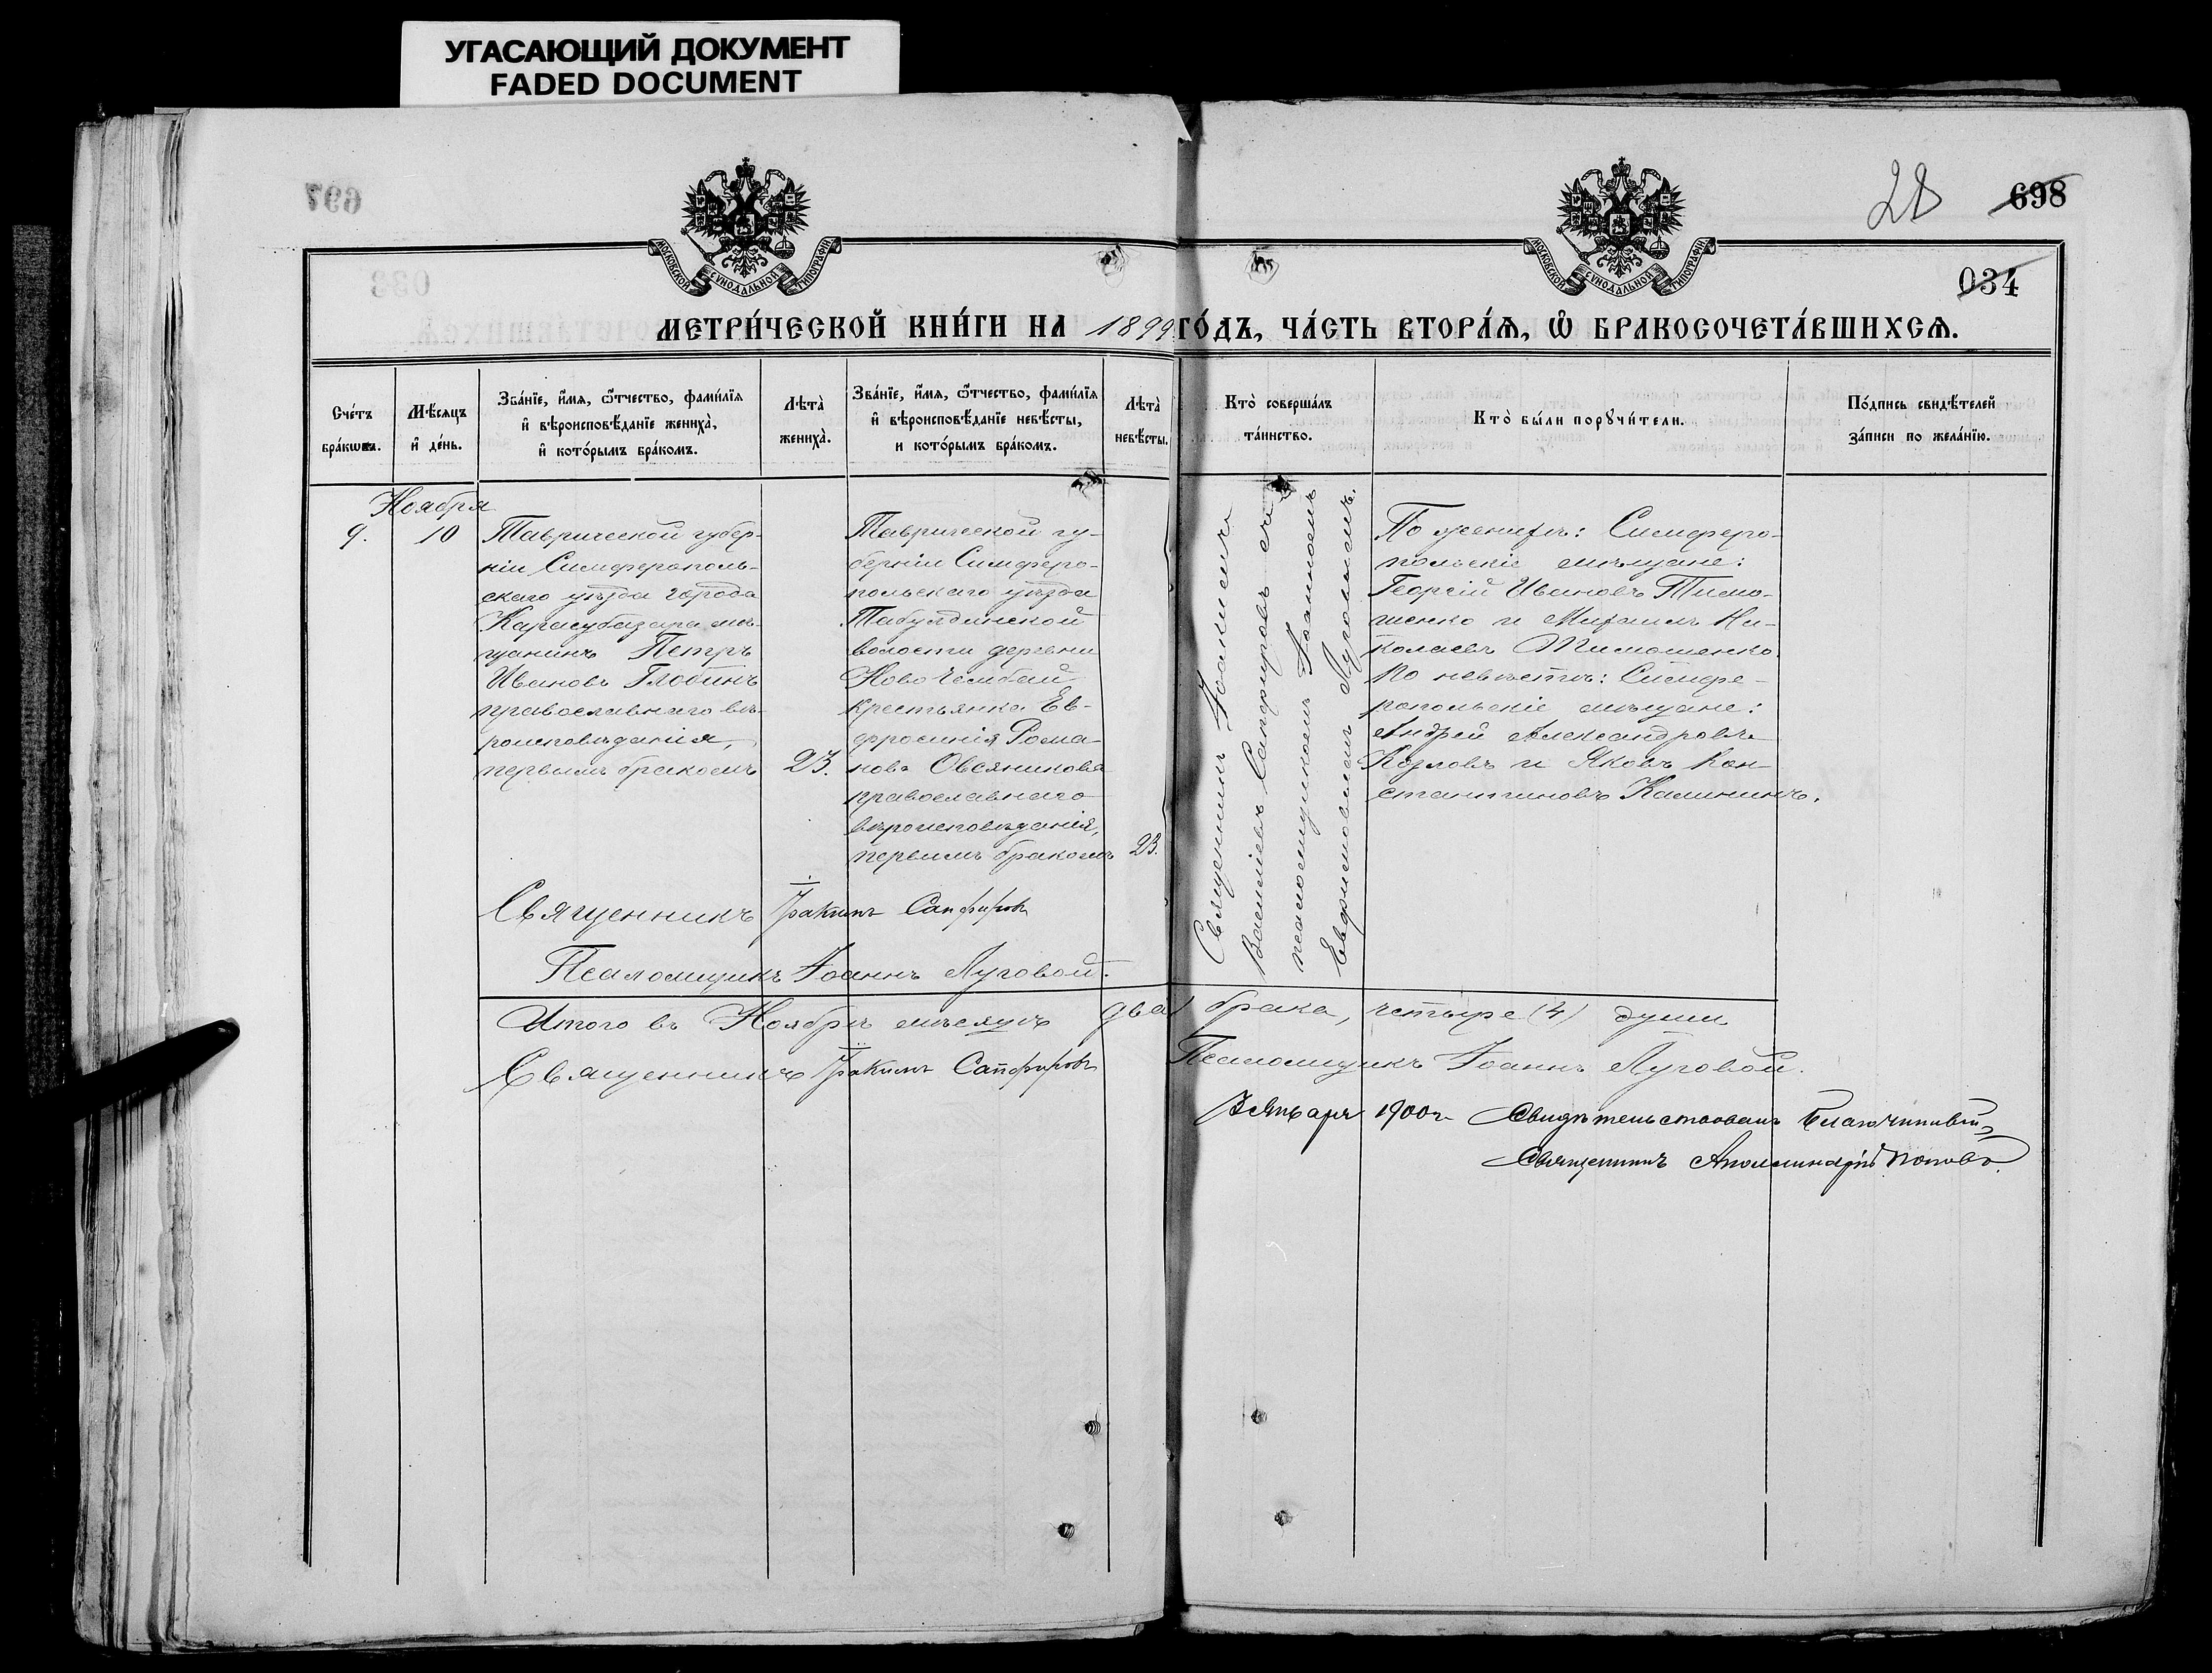 УГАСАЮЩИЙ ДОКУМЕНТ
FADED DOCUMENT
697
28 698
МОСКОВСКОЙ СѴНОДАЛЬНОЙ ТИПОГРАФІИ
МОСКОВСКОЙ СѴНОДАЛЬНОЙ ТИПОГРАФІИ
033
034
МЕТРИ́ЧЕСКОЙ КНИ́ГИ НА 1899 ГО́ДЪ, ЧА́СТЬ ВТОРА́Ѧ, Ѽ БРАКОСОЧЕТА́ВШИХСѦ.
Сче́тъ
бра́кѡвъ.
Мѣ́сяцъ
и҆ де́нь.
Зва́нїе, и҆́мѧ, ѻ҆́тчество, фами́лїѧ
и҆ вѣроисповѣ́данїе жениха̀,
и҆ кото́рымъ бра́комъ.
Лѣта̀
жениха̀.
Зва́нїе, и҆́мѧ, ѻ҆́тчество, фами́лїѧ
и҆ вѣроисповѣ́данїе невѣ́сты,
и кото́рымъ бра́комъ.
Лѣта̀
невѣ́сты.
Кто̀ соверша́лъ
та́инство.
Кто̀ бы́ли порꙋчи́тели.
По́дпись свидѣ́телей
за́писи по жела́нїю.
Ноября
9.
10
Таврической губер-
ніи Симферополь-
скаго уѣзда города
Карасубазара мѣ-
щанинъ Петръ
Ивановъ Глобинъ
православнаго вѣ-
роисповѣданія,
первымъ бракомъ
23.
Таврической гу-
берніи Симферо-
польскаго уѣзда
Табулдинской
волости деревни
Ново Чембай
крестьянка Ев-
фросинія Рома-
нова Овсяникова
православнаго
вѣроисповѣданія,
первымъ бракомъ
23.
Священникъ Іоакимъ
Васильевъ Сапфировъ съ
псаломщикомъ Іоанномъ
Евфимовымъ Луговымъ.
По женихѣ: Симферо-
польскіе мѣщане:
Георгій Ивановъ Тимо-
шенко и Михаилъ Ни-
колаевъ Тимошенко.
По невѣстѣ: Симфе-
ропольскіе мѣщане:
Андрей Александровъ
Козловъ и Яковъ Кон-
стантиновъ Калининъ.
Священникъ Іоакимъ Сапфировъ
Псаломщикъ Іоаннъ Луговой.
Итого въ Ноябрѣ мѣсяцѣ два брака, четыре (4) души
Священникъ Іоакимъ Сапфировъ Псаломщикъ Іоаннъ Луговой.
Января 1900 г. Свидѣтельствовалъ Благочинный
Священникъ Аполлинарій Поповъ.